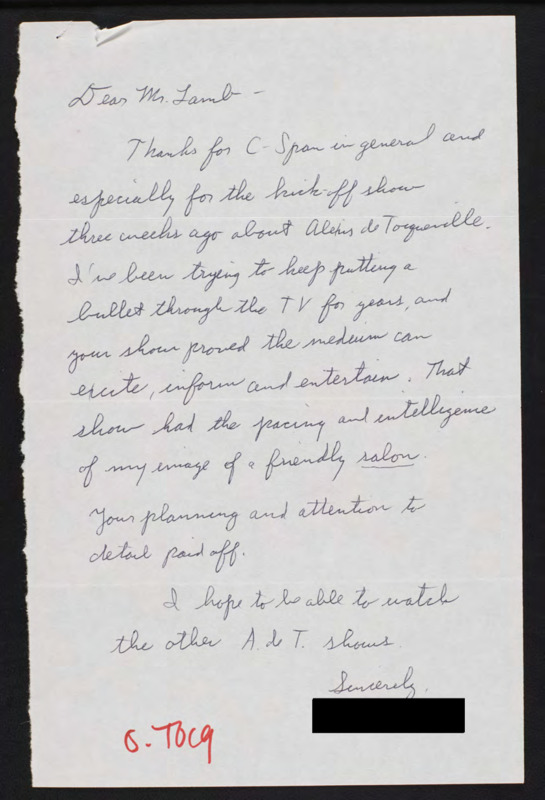 Dear Mr. Lamb -
Thanks for C-Span in general and
especially for the kick-off show
three weeks ago about Alexis de Tocqueville.
I've been trying to keep putting a
bullet through the TV for years, and
your show proved the medium can
excite, inform and entertain. That
show had the pacing and intelligence
of my image of a friendly salon.
Your planning and attention to
detail paid off.
I hope to be able to watch
the other A. de T. shows.
Sincerely,
G. TOCQ